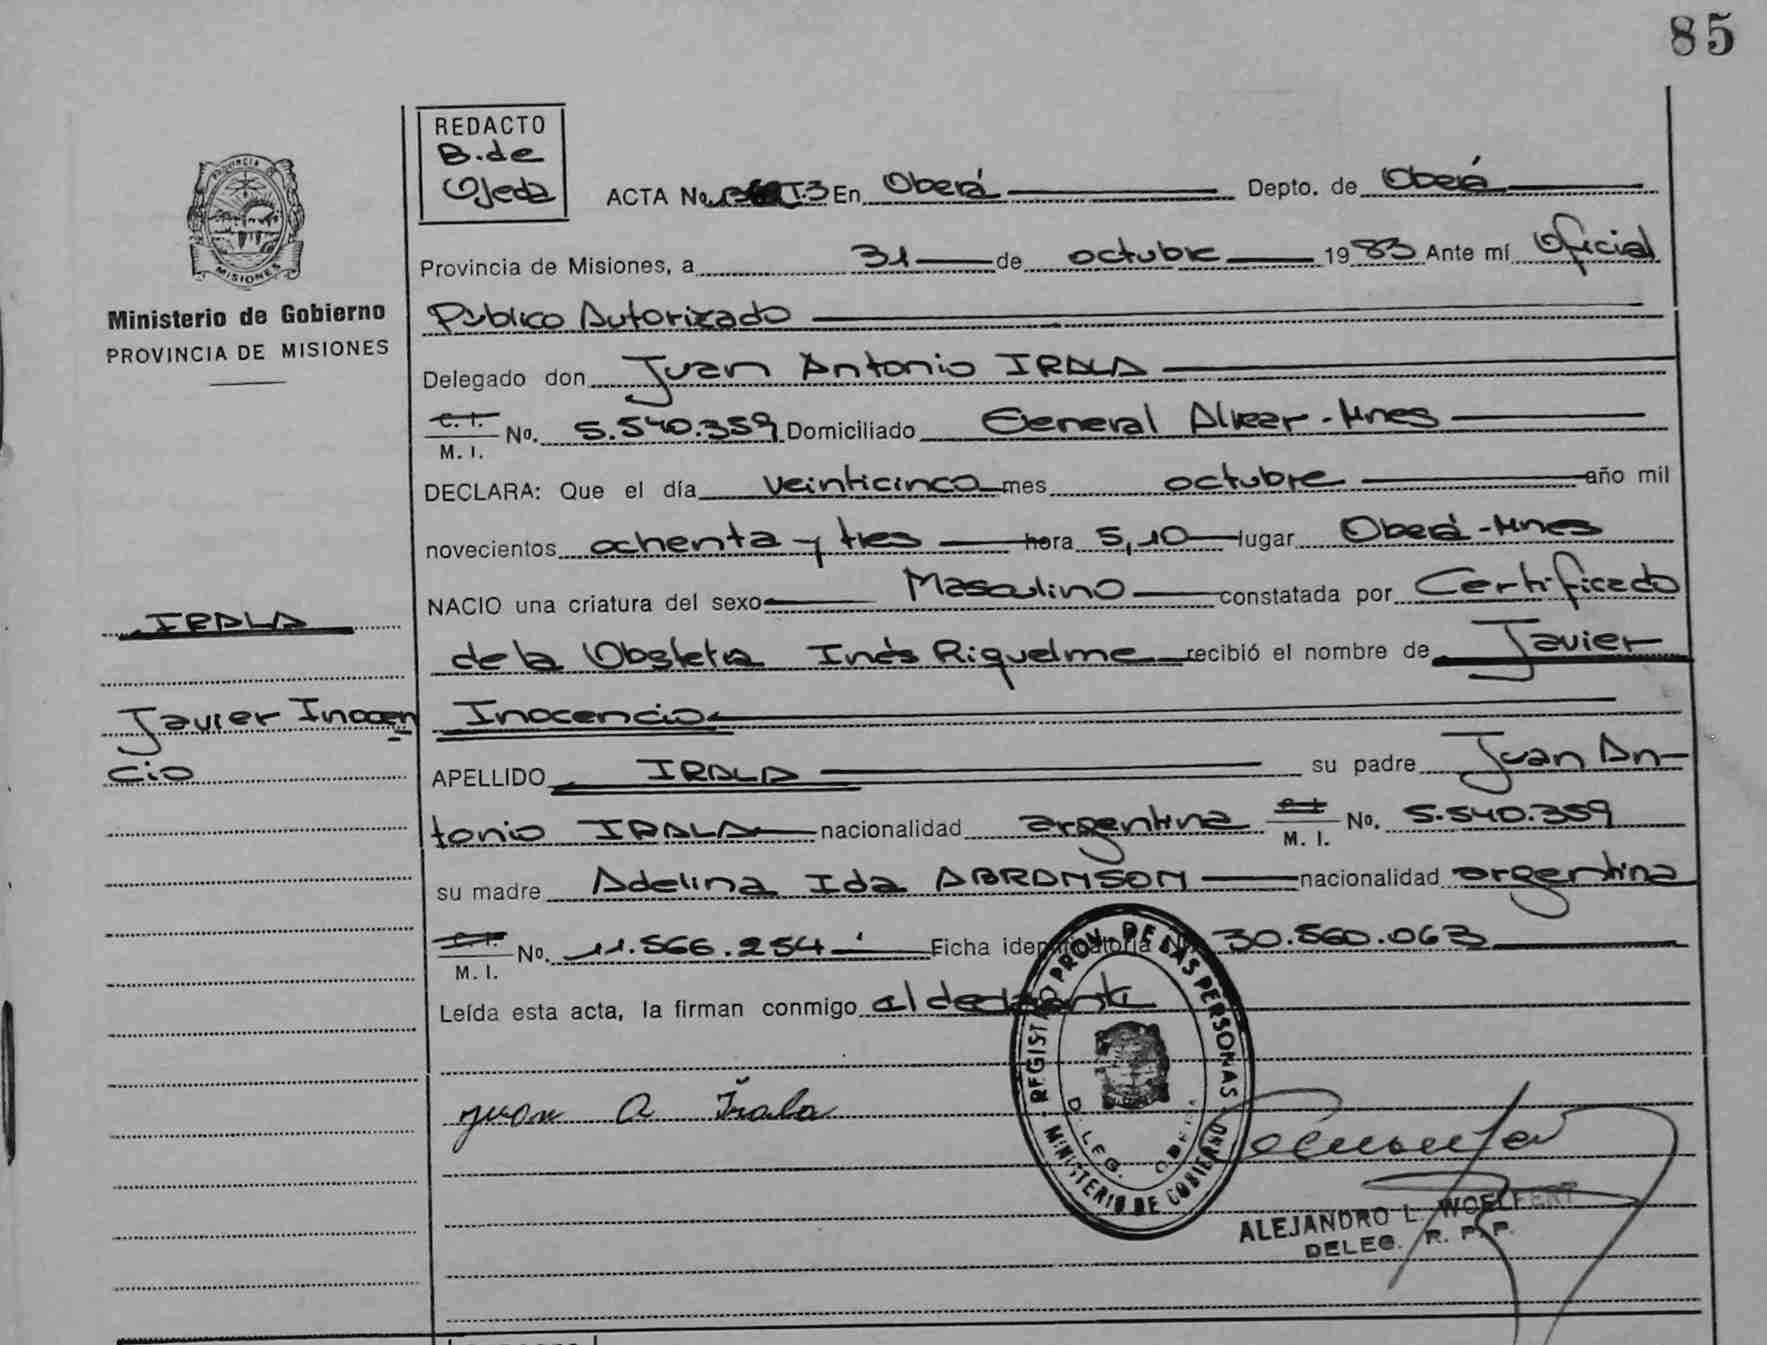 85
REDACTO
B. de
Ojeda
ACTA No. En Oberá Depto. de Oberá
PROVINCIA
MISIONES
Ministerio de Gobierno
PROVINCIA DE MISIONES
Provincia de Misiones, a 31 de octubre 1983 Ante mí Oficial
Público Autorizado
Delegado don Juan Antonio IRALA
C. I.
M. I. No. 5.540.359 Domiciliado General Alvear - Mnes
DECLARA: Que el día veinticinco mes octubre año mil
novecientos ochenta y tres hora 5,10 lugar Oberá - Mnes
NACIO una criatura del sexo Masculino constatada por Certificado
de la Obstetra Inés Riquelme recibió el nombre de Javier
Inocencio
APELLIDO IRALA su padre Juan An-
tonio IRALA nacionalidad argentina C. I. M. I. No. 5.540.359
su madre Adelina Ida ABRAMSON nacionalidad argentina
C. I.
M. I. No. 11.566.254 Ficha identificatoria No. 30.560.063
Leída esta acta, la firman conmigo el declarante
IRALA
Javier Inocen
cio
Juan A Irala
REGISTRO PROV. DE LAS PERSONAS
MINISTERIO DE GOBIERNO
DELEG. OBERA
ALEJANDRO L. WOELFERT
DELEG. R. P. P.